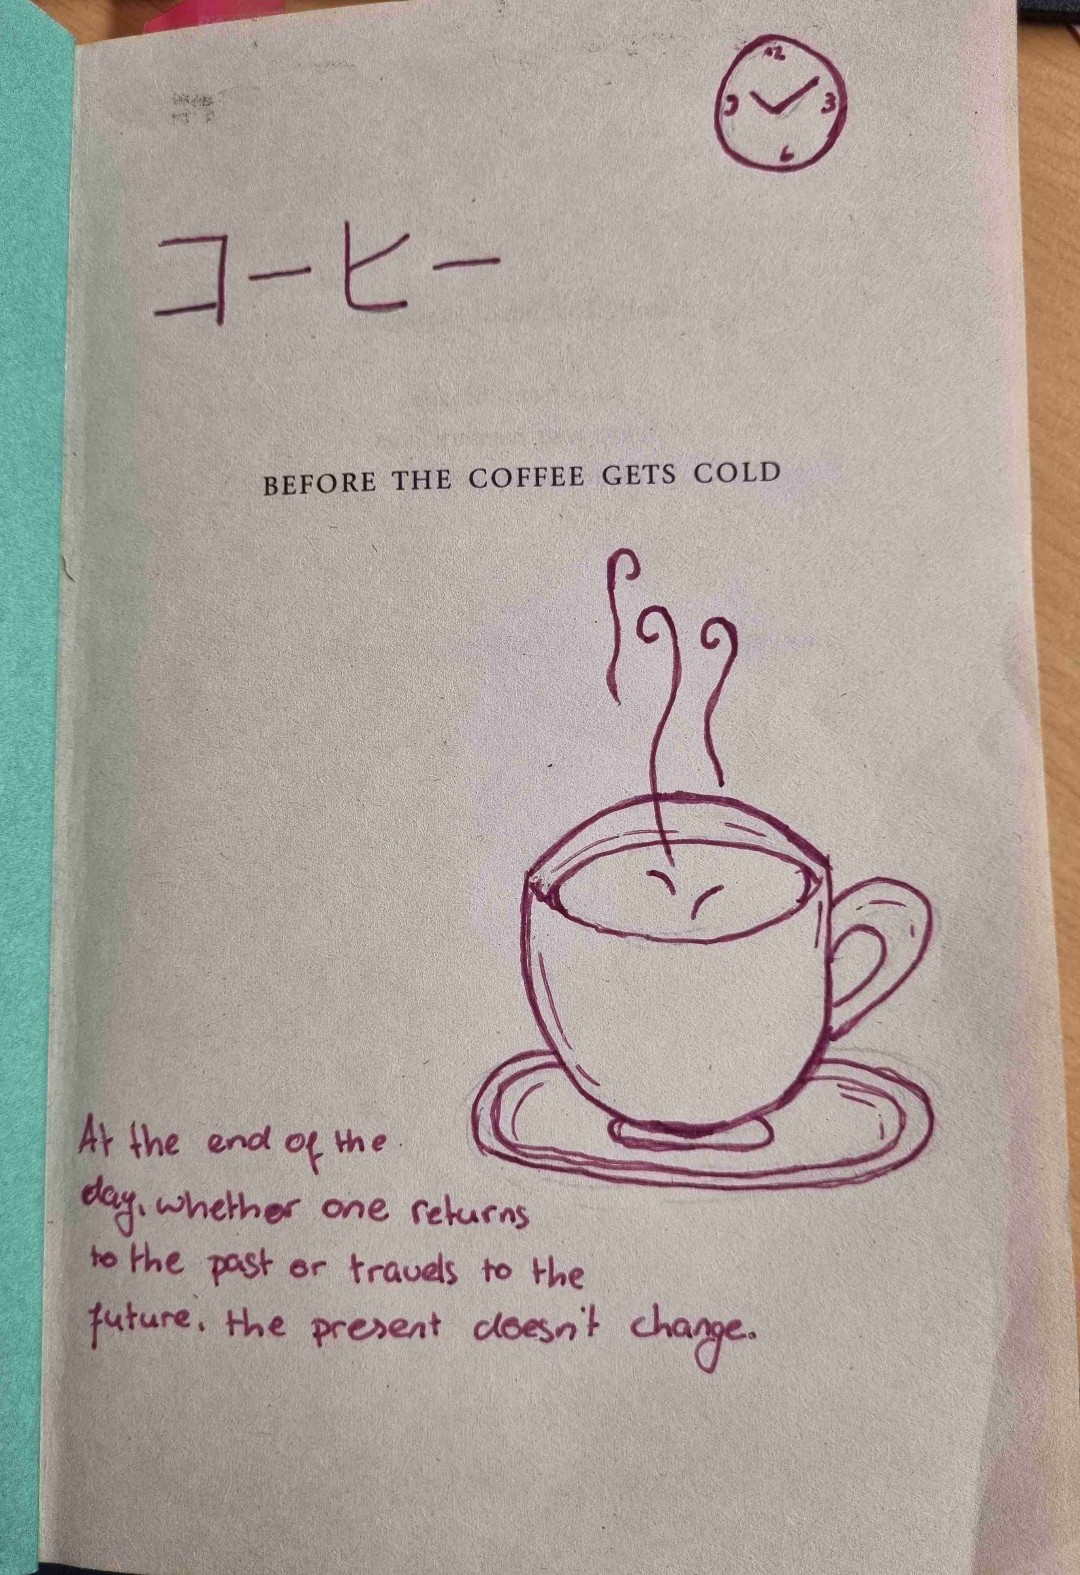 12
9 3
6
コーヒー
BEFORE THE COFFEE GETS COLD
At the end of the
day, whether one returns
to the past or travels to the
future, the present doesn't change.